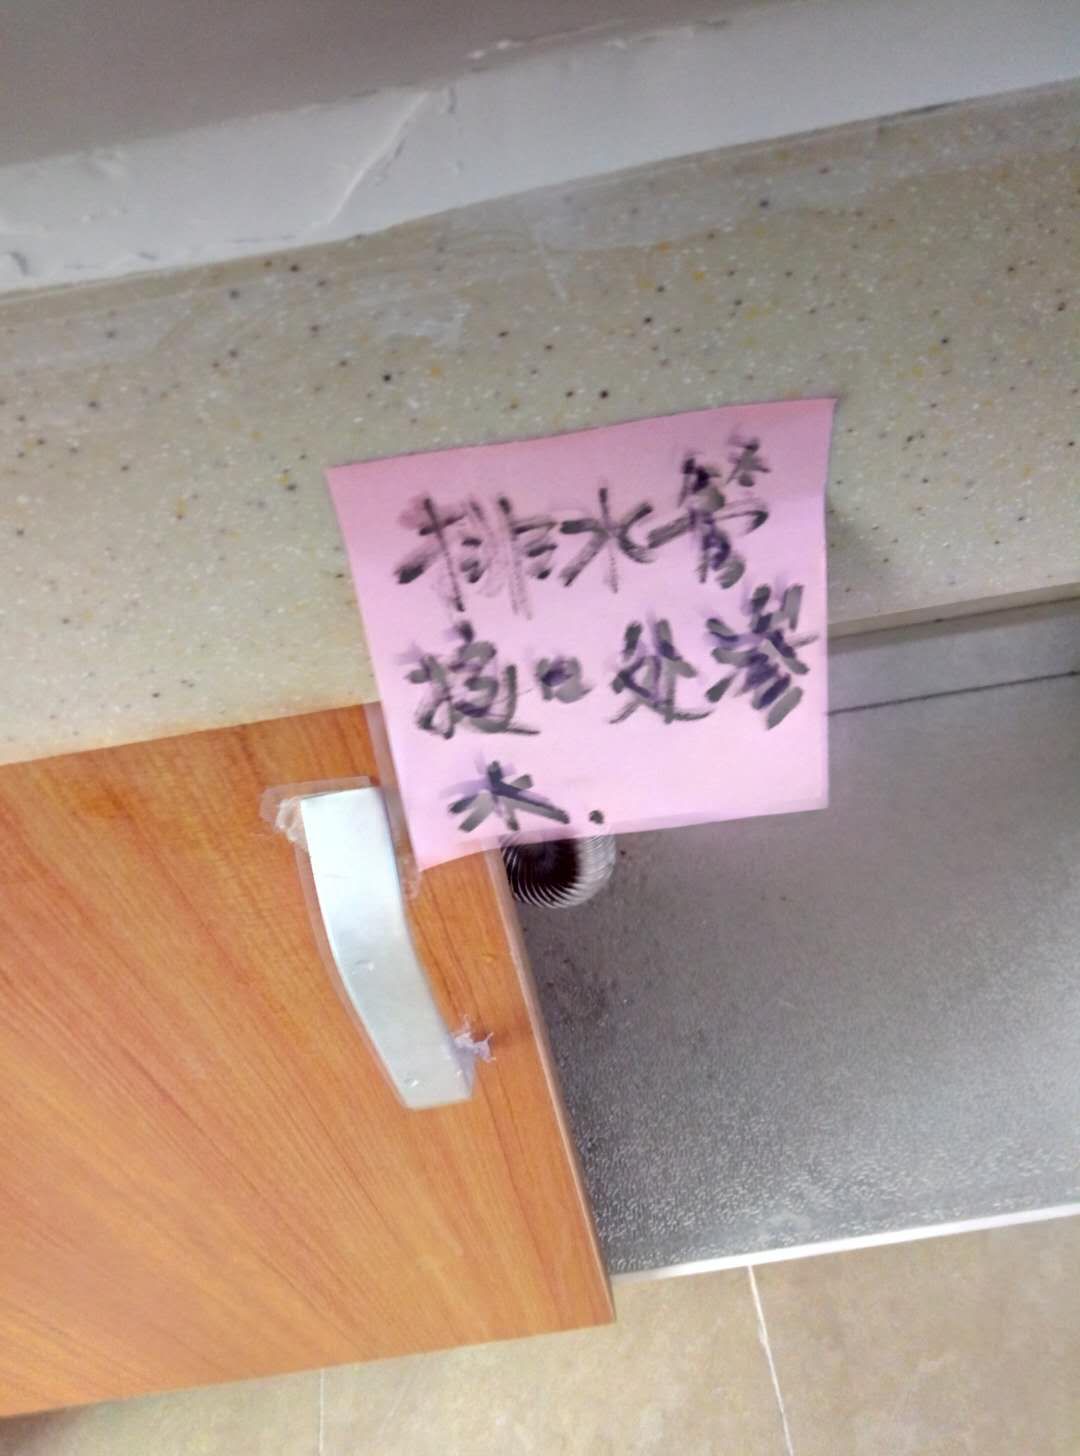 排水管
接口处渗
水.